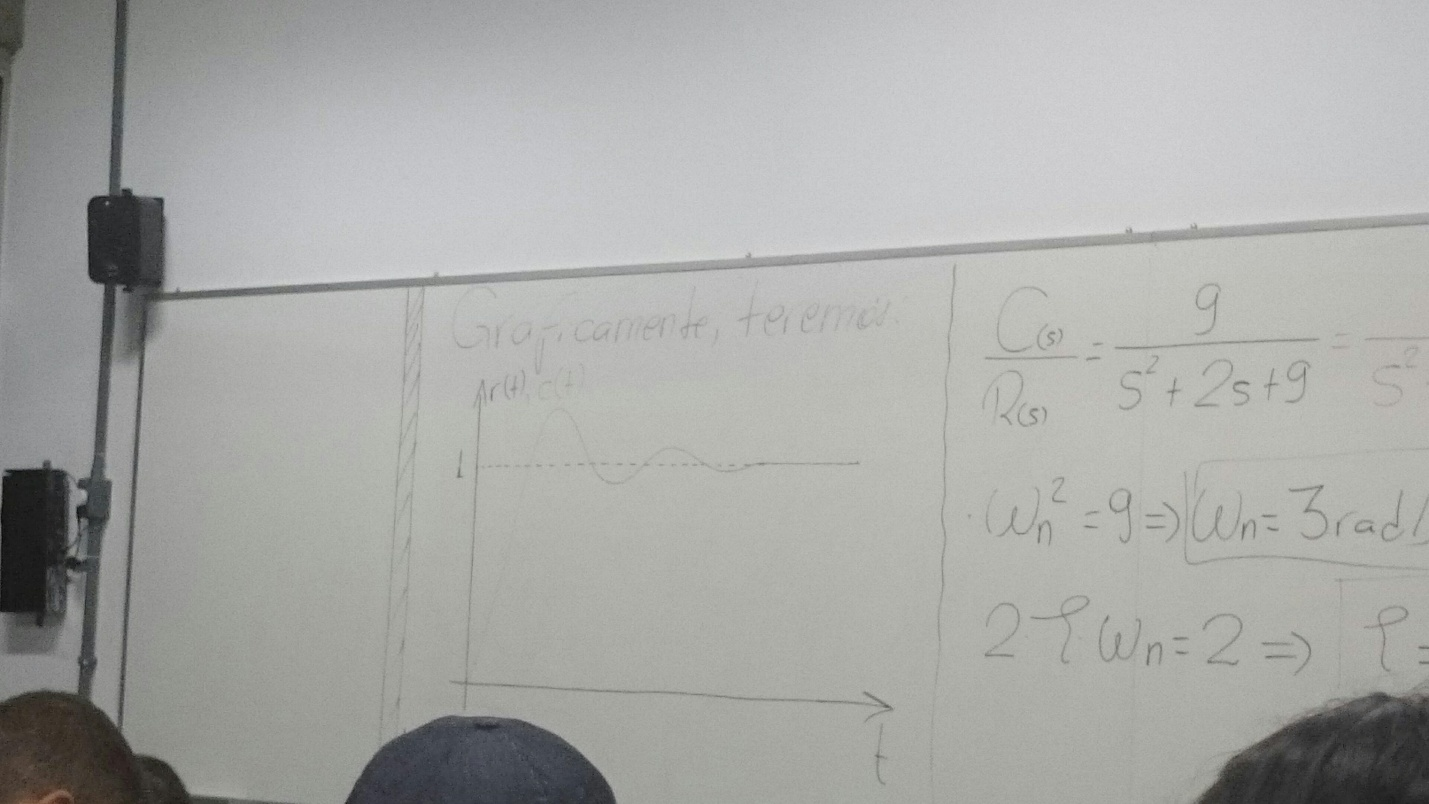 Graficamente, teremos:
r(t), c(t)
1
t
C(s)/R(s) = 9/(s²+2s+9) = /s²
ωn² = 9 => ωn = 3rad/
2ζωn = 2 => ζ =